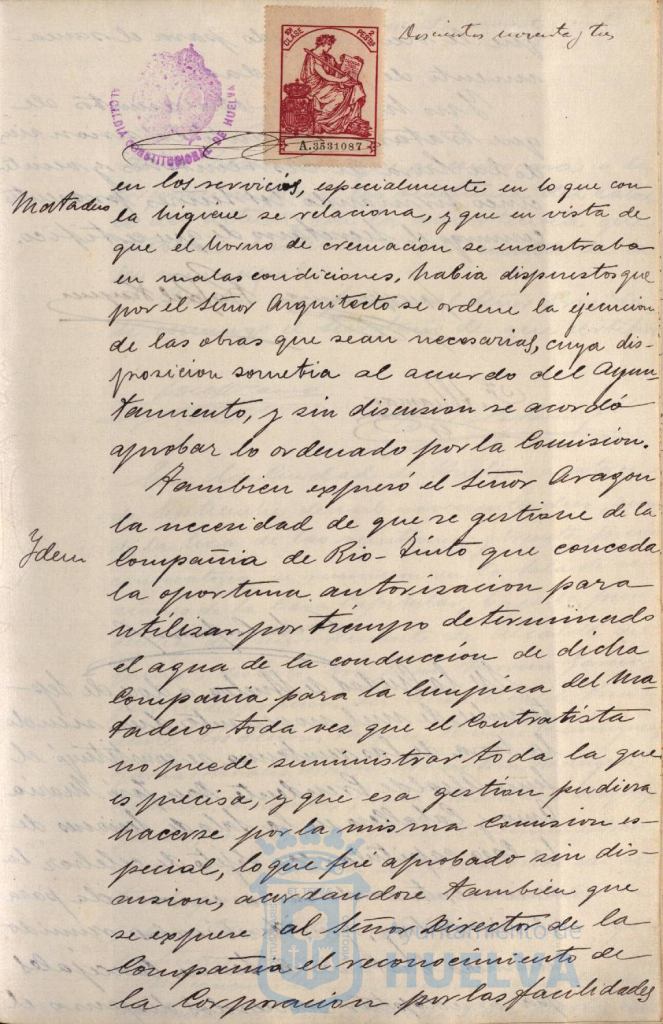 Doscientos noventa y tres
10ª CLASE
2 PESETAS
A.3531087
ALCALDIA CONSTITUCIONAL DE HUELVA
Matadero
en los servicios, especialmente en lo que con
la higiene se relaciona, y que en vista de
que el horno de cremacion se encontraba
en malas condiciones, habia dispuestos que
por el Señor Arquitecto se ordene la ejecucion
de las obras que sean necesarias, cuya dis-
posicion sometia al acuerdo del Ayun-
tamiento, y sin discusion se acordó
aprobar lo ordenado por la Comision.
Tambien expuso el Señor Aragon
Ydem
la necesidad de que se gestione de la
Compañia de Rio-Tinto que conceda
la oportuna autorizacion para
utilizar por tiempo determinado
el agua de la conducción de dicha
Compañia para la limpiesa del Ma-
tadero toda vez que el Contratista
no puede suministrar toda la que
es precisa, y que esa gestión pudiera
hacerse por la misma Comision es-
pecial, lo que fué aprobado sin dis-
cusion, acordandose tambien que
se exprese al Señor Director de la
Compañia el reconocimiento de
la Corporacion por las facilidades
Ayuntamiento de
HUELVA